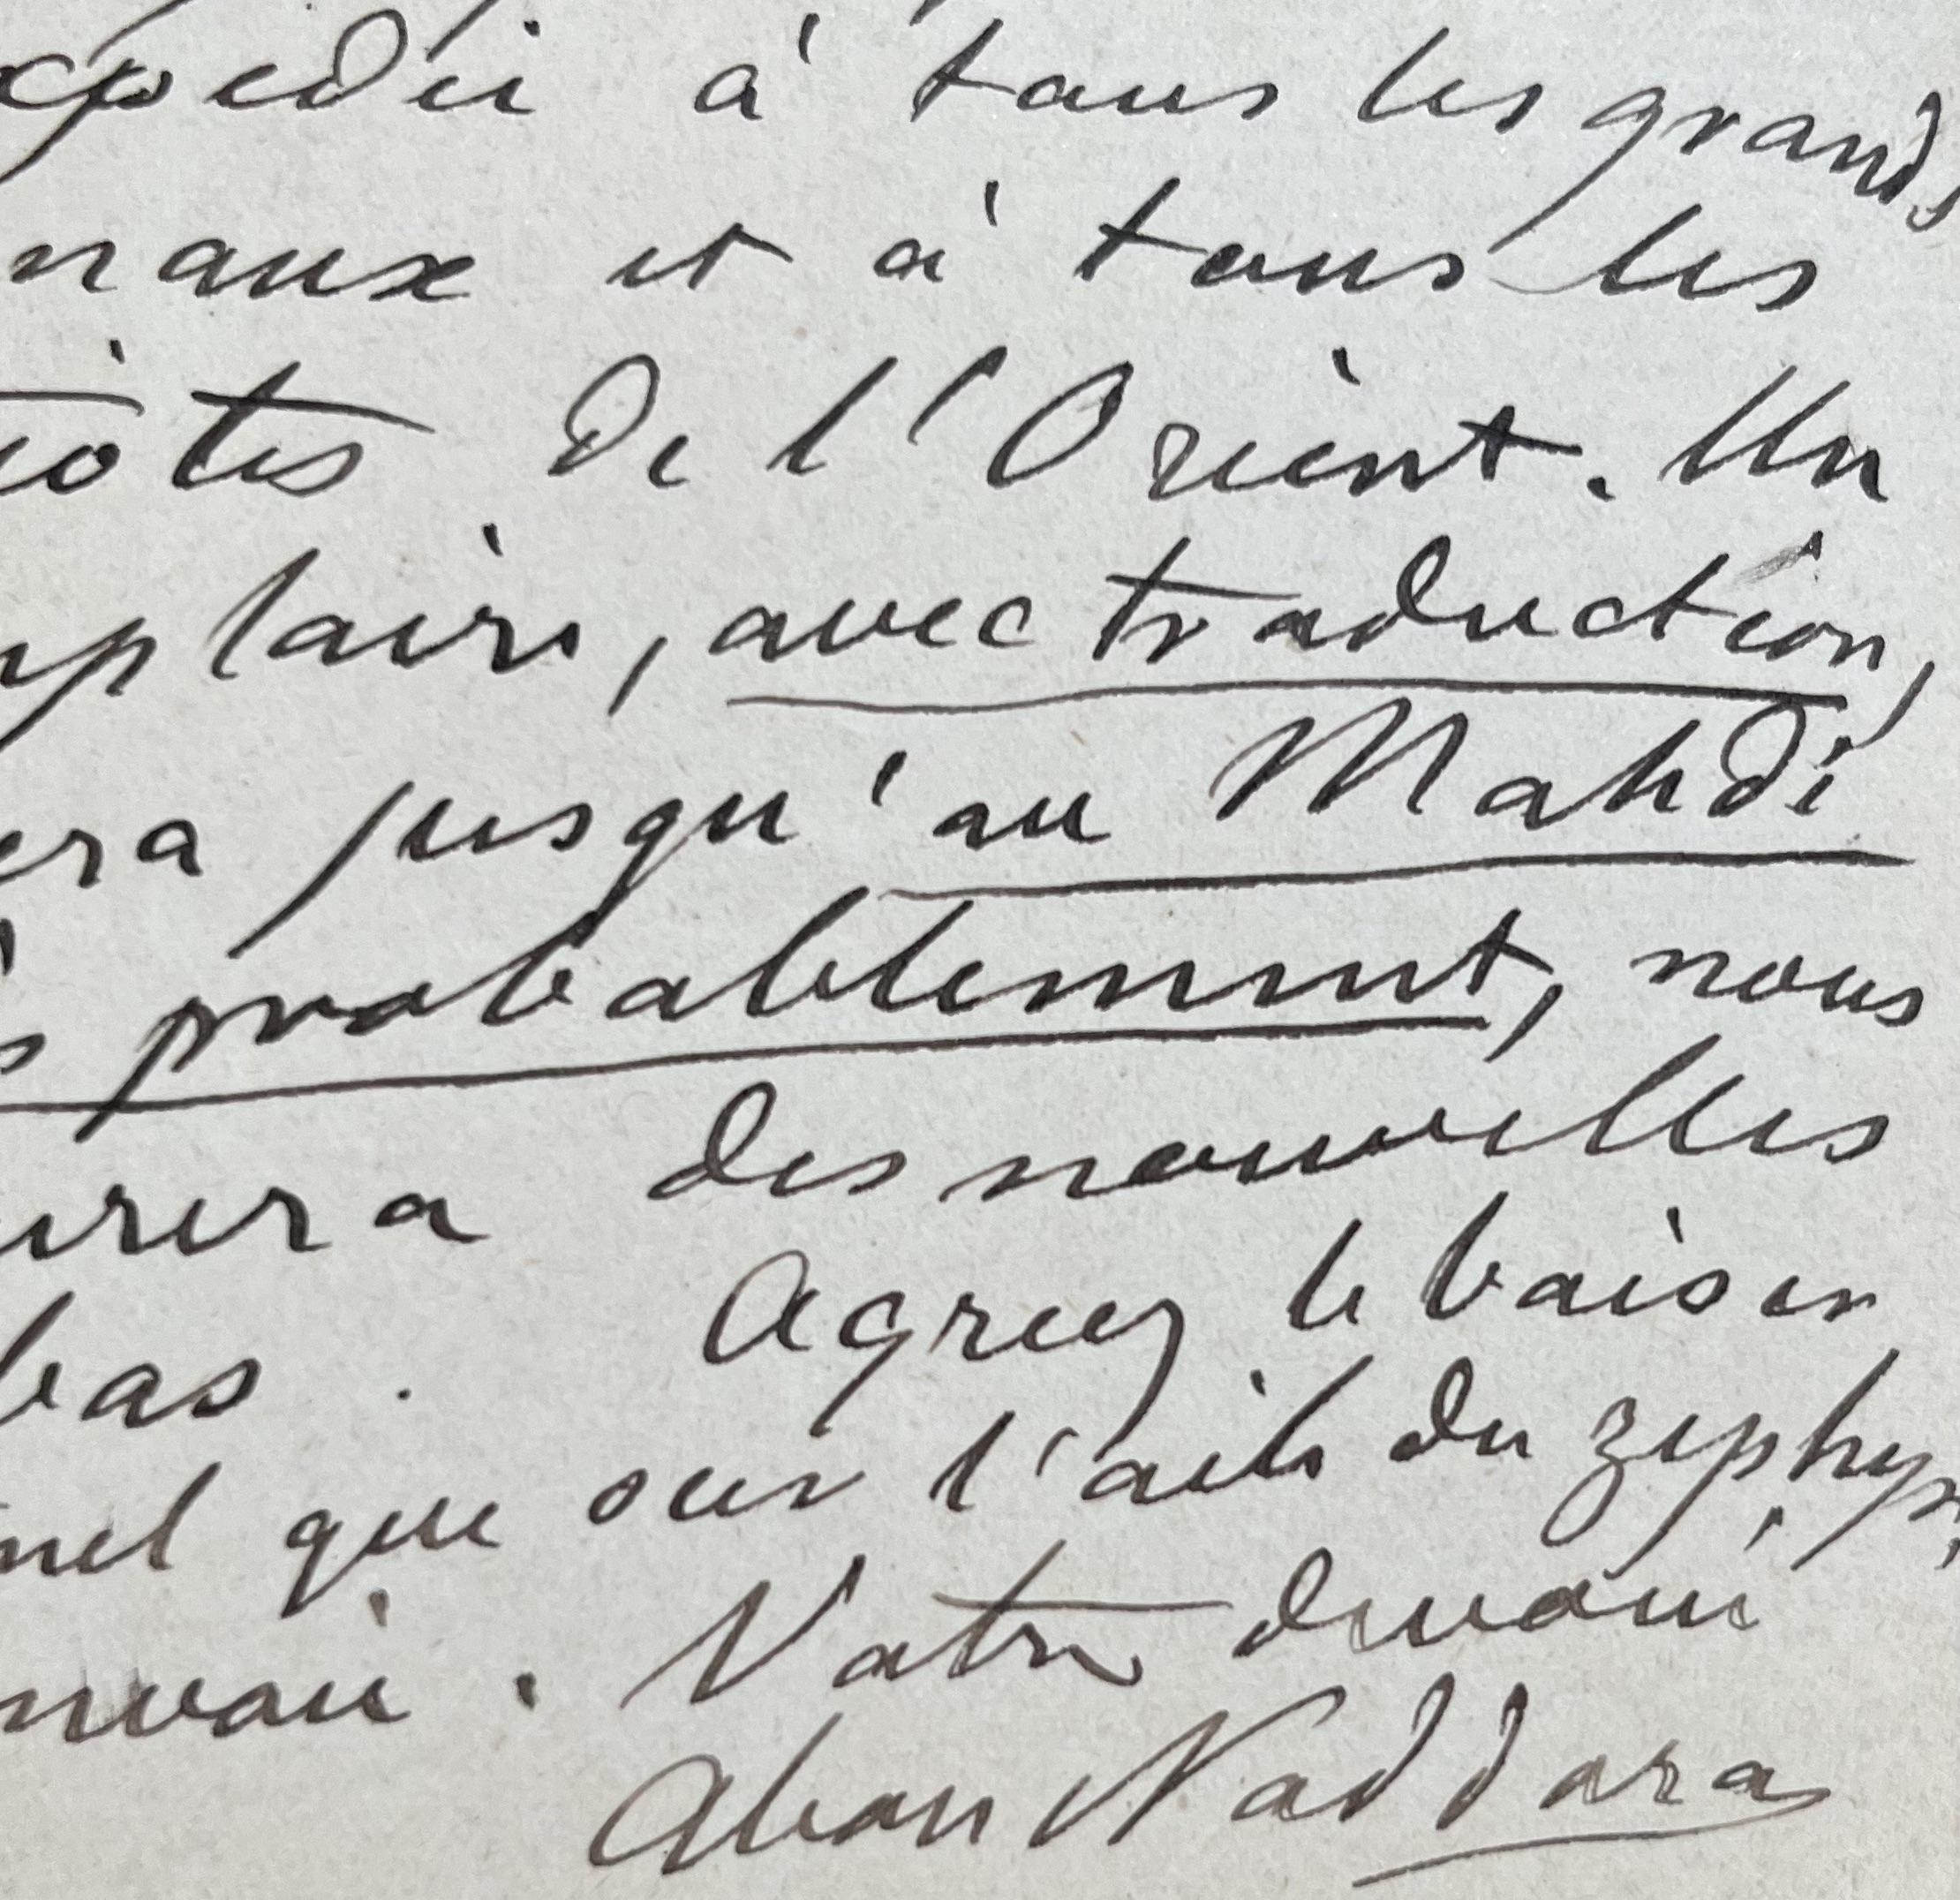 xpedié à tous les grands
naux et à tous les
iotes de l'Orient. Un
mplaire, avec traduction,
era jusqu'au Mahdi
s probablement, nous
urera des nouvelles
bas. Agréez le baiser
nel que sur l'aile du zéphyr,
nvoie. Votre dévoué
Abou Naddara